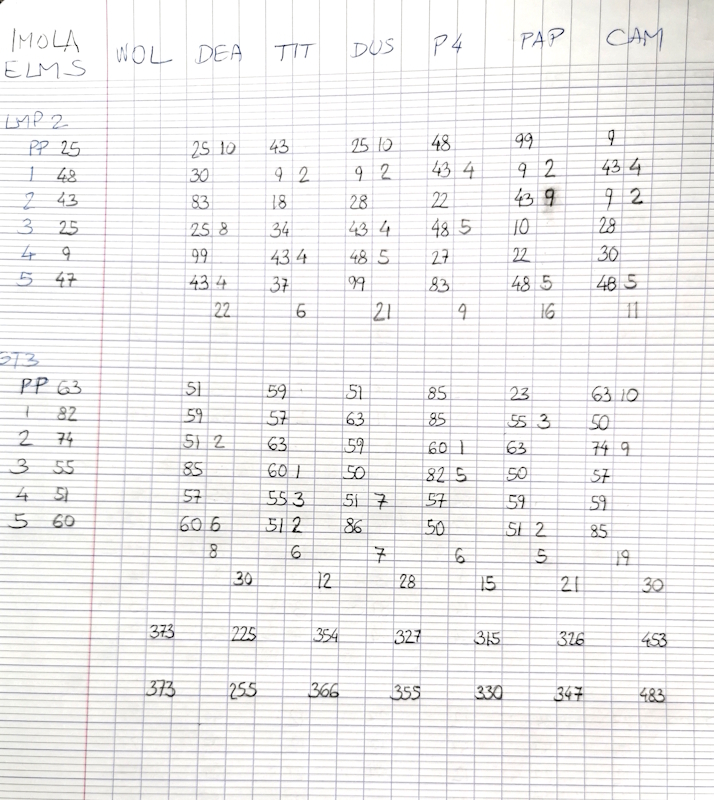 IMOLA
ELMS WOL DEA TIT DUS P4 PAP CAM
LMP 2
PP 25 25 10 43 25 10 48 99 9
1 48 30 9 2 9 2 43 4 9 2 43 4
2 43 83 18 28 22 43 9 9 2
3 25 25 8 34 43 4 48 5 10 28
4 9 99 43 4 48 5 27 22 30
5 47 43 4 37 99 83 48 5 48 5
22 6 21 9 16 11
GT3
PP 63 51 59 51 85 23 63 10
1 82 59 57 63 85 55 3 50
2 74 51 2 63 59 60 1 63 74 9
3 55 85 60 1 50 82 5 50 57
4 51 57 55 3 51 7 57 59 59
5 60 60 6 51 2 86 50 51 2 85
8 6 7 6 5 19
30 12 28 15 21 30
373 225 354 327 315 326 453
373 255 366 355 330 347 483